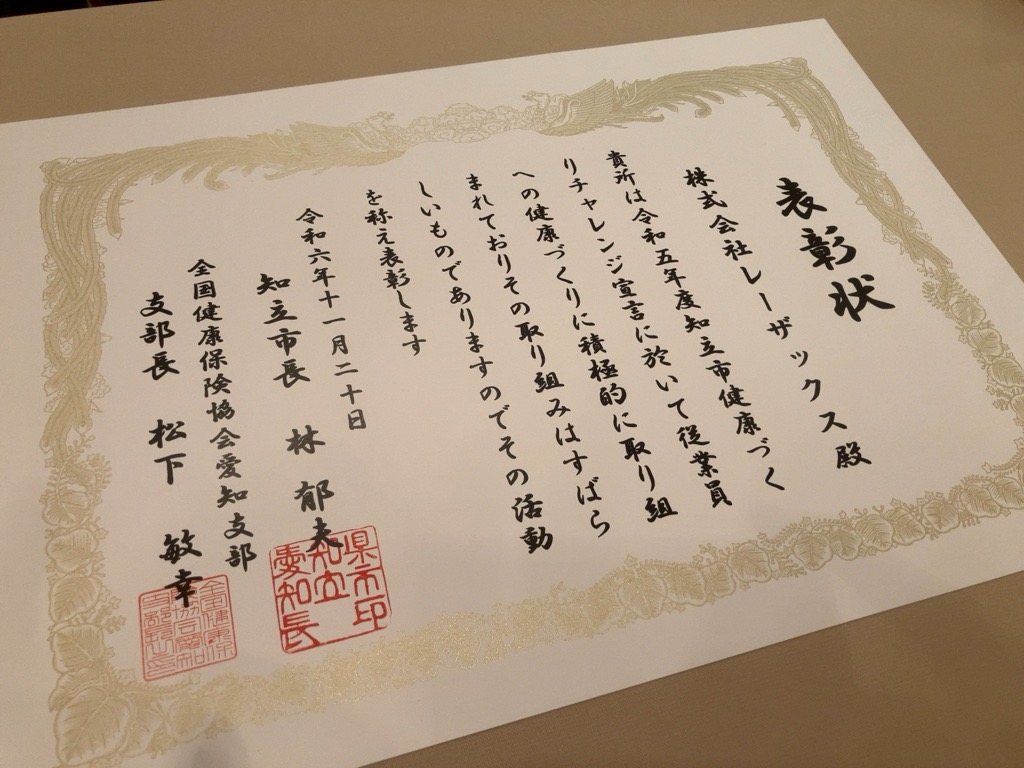 表彰状
株式会社レーザックス殿
貴所は令和五年度知立市健康づく
りチャレンジ宣言に於いて従業員
への健康づくりに積極的に取り組
まれておりその取り組みはすばら
しいものでありますのでその活動
を称え表彰します
令和六年十一月二十日
知立市長 林 郁夫
全国健康保険協会愛知支部
支部長 松下 敏幸
愛知県知立市長印